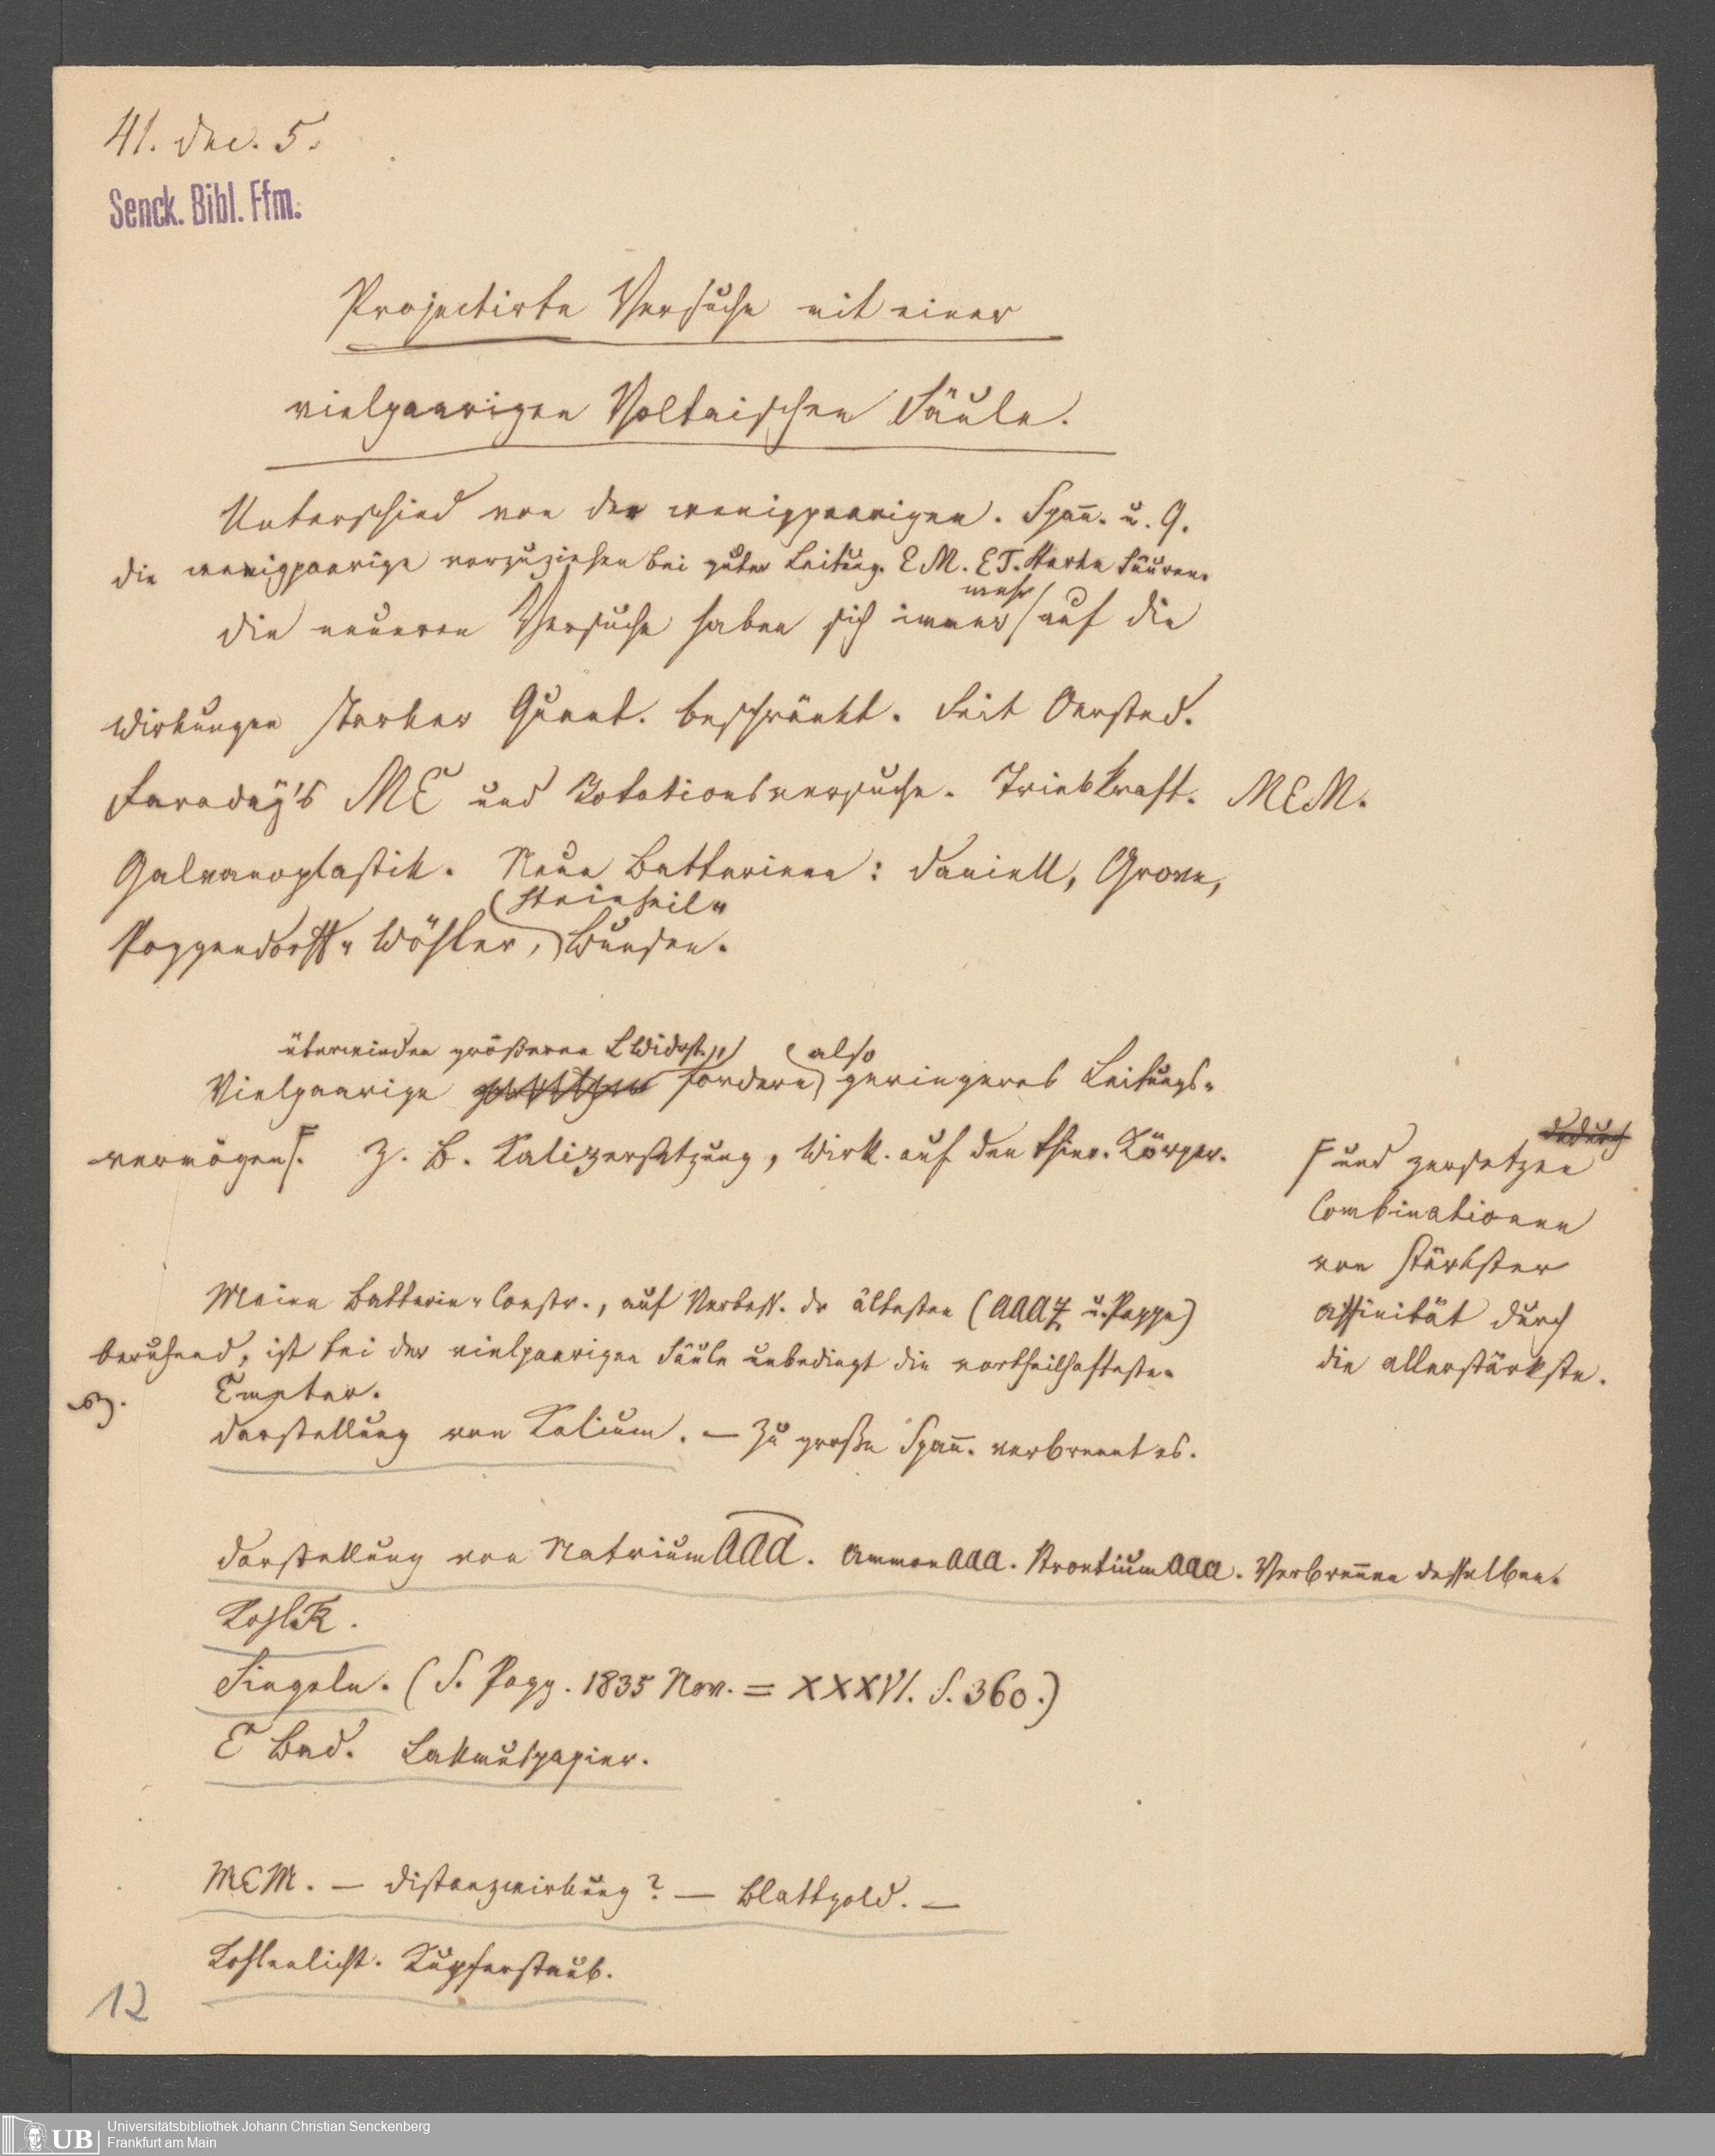 41. Dec. 5.
Senck. Bibl. Ffm.
Projectirte Versuche mit einer
vielpaarigen Voltaischen Säule.
Unterschied von der wenigpaarigen. Spañ. u. Q.
die wenigpaarige vorzuziehen bei guter Leitung. EM. ET. Starke Säuren.
mehr
Die neueren Versuche haben sich immer auf die
Wirkungen starker Quant. beschränkt. Seit Oersted.
Faraday's ME und Rotationsversuche. Triebkraft. MEM.
Galvanoplastik. Neue Batterieen: Daniell, Grove,
Steinheil
Poggendorff, Wöhler, Bunsen.
überwinden größeren LWiderst., also
Vielpaarige fordern geringeres Leitungs-
vermögen. Z. B. Kalizersetzung, Wirk. auf den thier. Körper.
dadurch
und zersetzen
Combinationen
von stärkster
Affinität durch
die allerstärkste.
Meine Batterie-Constr., auf Verbess. der ältesten (u. Pappe)
beruhend, ist bei der vielpaarigen Säule unbedingt die vortheilhafteste.
Emeter.
Darstellung von Kalium. — Zu große Spañ. verbrennt es.
Darstellung von Natrium. Ammon. Strontium. Verbreñen desselben.
Kohl
Siegeln. (S. Pogg. 1835 Nov. = XXXVI. S. 360.)
E Bad. Lakmuspapier.
MEM. — Distanzwirkung? — Blattgold. —
Kohlenlicht. Kupferstaub.
12
UB
Universitätsbibliothek Johann Christian Senckenberg
Frankfurt am Main